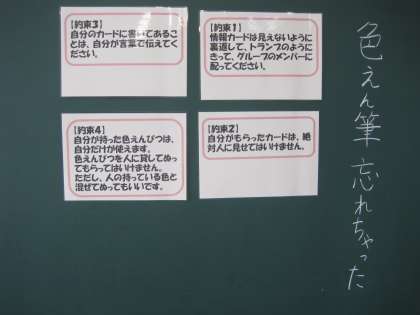 色えん筆忘れちゃった
【約束1】
情報カードは見えないように
裏返して、トランプのように
きって、グループのメンバーに
配ってください。
【約束2】
自分がもらったカードは、絶
対人に見せてはいけません。
【約束3】
自分のカードに書いてあるこ
とは、自分が言葉で伝えてく
ださい。
【約束4】
自分が持った色えんぴつは、
自分だけが使えます。
色えんぴつを人に貸してぬっ
てもらってはいけません。
ただし、人の持っている色と
混ぜてぬってもいいです。